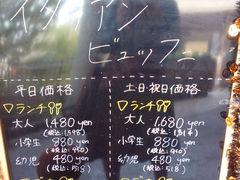 イタリアン
ビュッフェ
平日価格
▽ランチ
大人 1,480 yen
(税込:1,598)
小学生 880 yen
(税込:950)
幼児 480 yen
(税込:518)
土日・祝日価格
▽ランチ
大人 1,680 yen
(税込:1,814)
小学生 880 yen
(税込:950)
幼児 480 yen
(税込:518)